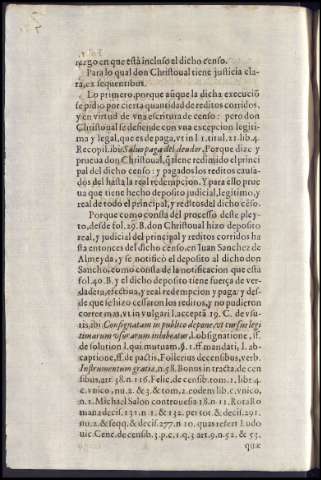 cargo en que està incluso el dicho censo.
Para lo qual don Christoual tiene justicia clara, ex sequentibus.
Lo primero, porque aũque la dicha execuciõ
se pidio por cierta quantidad de reditos corridos,
y en virtud de vna escritura de censo : pero don
Christoual se defiende con vna excepcion legiti
ma y legal, que es de paga, vt in l. 1. titul. 21. lib. 4.
Recopil. ibi: Saluo paga del deudor, Porque dize y
prueua don Christoual, q̃ tiene redimido el princi
pal del dicho censo : y pagados los reditos causa-
dos hasta la real redempcion. Y para ello prue
ua que tiene hecho deposito judicial, legitimo, y
real de todo el principal, y reditos del dicho cẽso.
Porque como consta del processo deste pley-
to, desde fol. 29. B. don Christoual hizo deposito
real, y judicial del principal y reditos corridos ha
sta entonces del dicho cẽso, en Iuan Sanchez de
Almeyda, y se notificò el deposito al dicho don
Sancho, como consta de la notificacion que està
fol. 40. B. y el dicho deposito tiene fuerça de ver-
dadera, efectiua, y real redempcion y paga y des-
de que se hizo cessaron los reditos, y no pudieron
correr mas, vt in vulgari l. acceptã 19. C. de vsu-
ris. ibi Consignatam in publico depone, vt cursus legi
timarum vsurarum inhibeatur, l. obsignatione, ff.
de solution l. qui mutuam. §. 1. ff. mandati, l. ab-
captione, ff. de pactis, Follerius de censibus, verb.
Instrumentum gratia, n. 58. Bonus in tracta. de cen
sibus, art. 38. n. 116. Felic. de censib. tom. 1. lib. 4.
c. vnico, nu. 2. & 3. & tom. 2. eodem lib. c. vnico,
n. 1. Michael Salon controuersia 18. n. 11. Rota Ro
mana decis. 131. n. 1. & 132. per tot. & decis. 291.
nu. 2. & seqq. & decis. 277. n. 10. quas refert Ludo
uic. Cenc. de censib. 3. p. c. 1. q. 3 art. 9. n. 52. & 53.
quæ